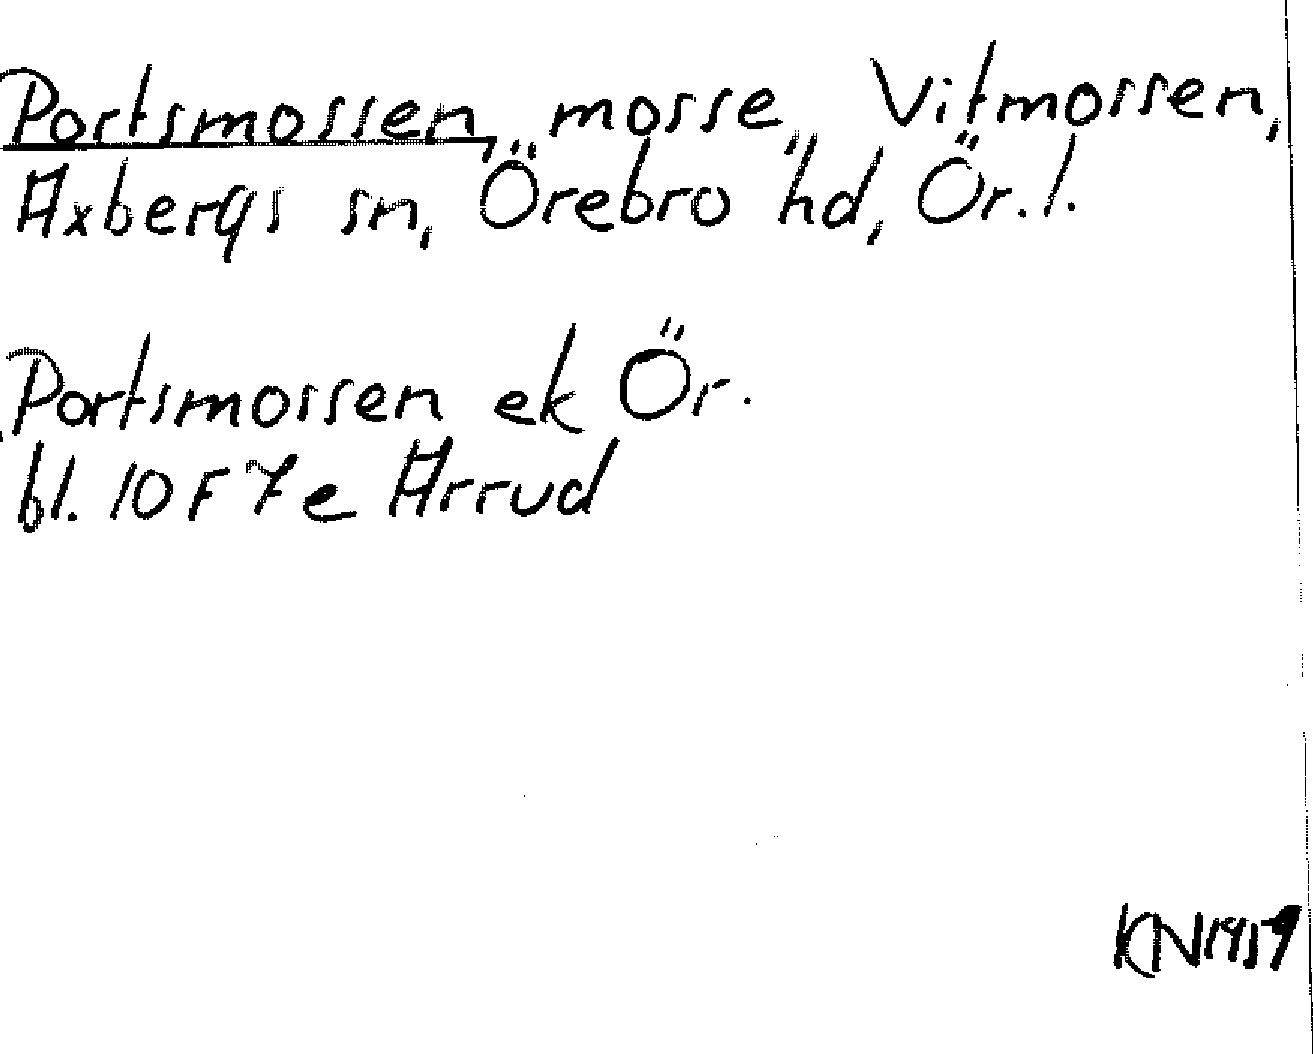 Portsmossen, mosse, Vitmossen,
Axbergs sn, Örebro hd, Ör. l.
Portsmossen ek Ör.
bl. 10 F 7 e Arrud